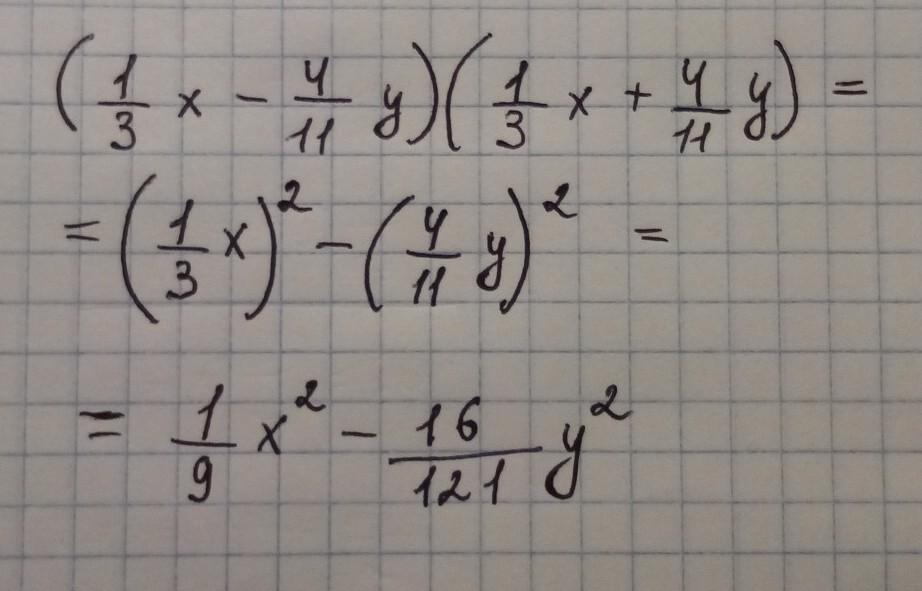 (1/3 x - 4/11 y)(1/3 x + 4/11 y) =
= (1/3 x)² - (4/11 y)² =
= 1/9 x² - 16/121 y²